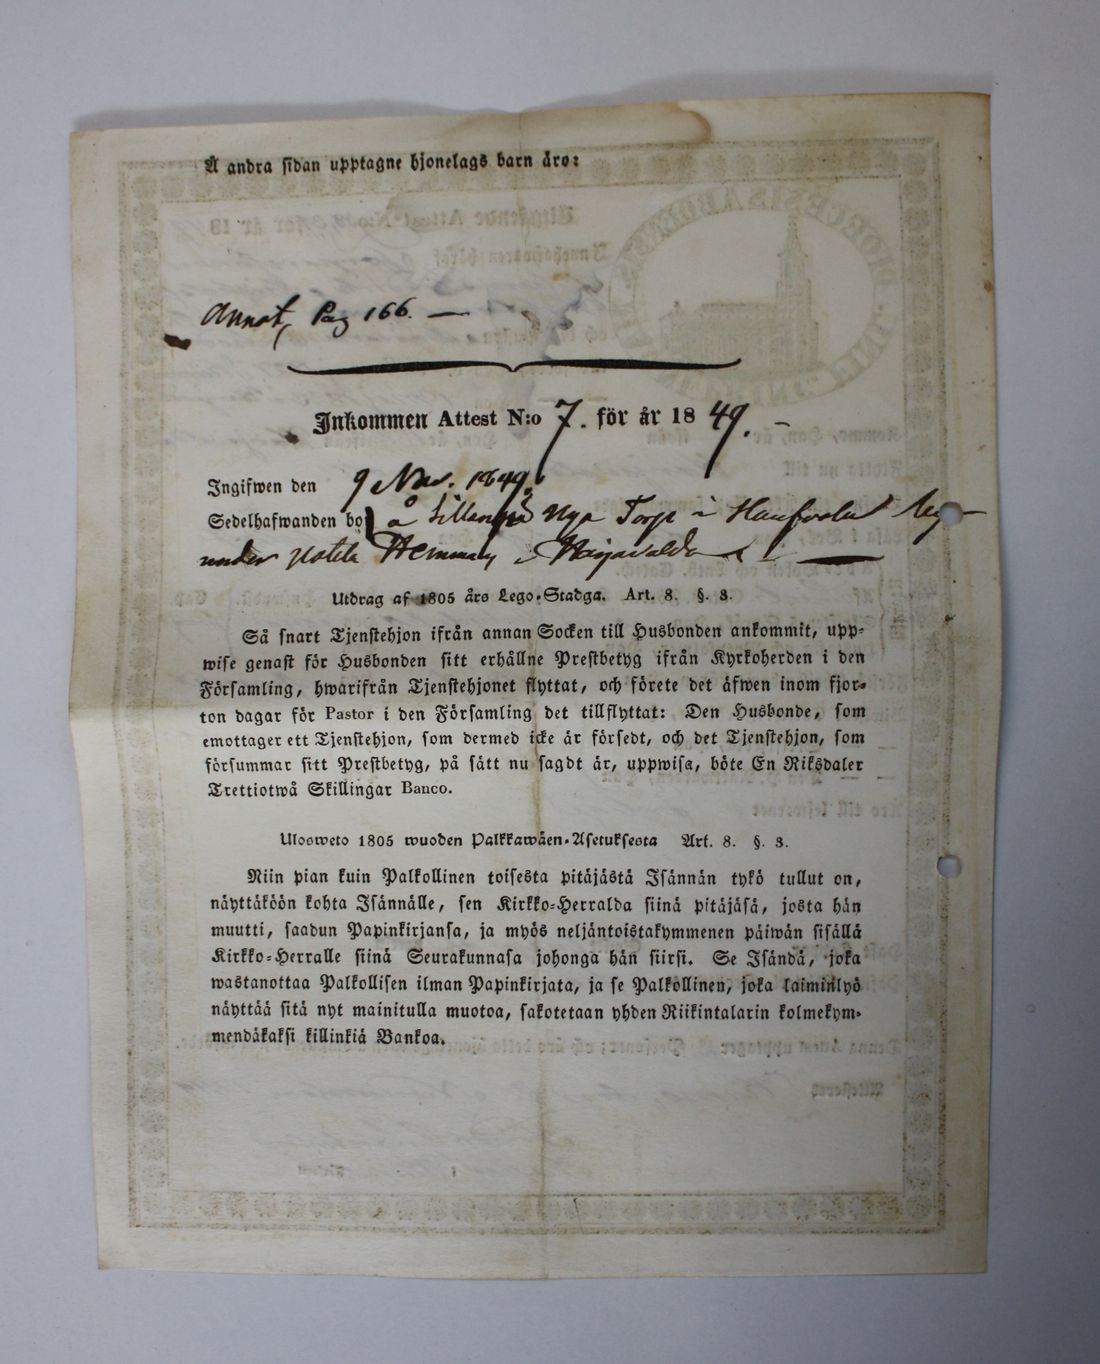 Å andra sidan upptagne hjonelags barn äro:
Annot, Pag 166. —
Inkommen Attest N:o 7. för år 1849. —
Ingifwen den 9 Nov. 1849.
Sedelhafwanden bor å Nya Torp i
under Hemman i
Utdrag af 1805 års Lego-Stadga. Art. 8. §. 3.
Så snart Tjenstehjon ifrån annan Socken till Husbonden ankommit, upp-
wise genast för Husbonden sitt erhållne Prestbetyg ifrån Kyrkoherden i den
Församling, hwarifrån Tjenstehjonet flyttat, och förete det äfwen inom fjor-
ton dagar för Pastor i den Församling det tillflyttat: Den Husbonde, som
emottager ett Tjenstehjon, som dermed icke är försedt, och det Tjenstehjon, som
försummar sitt Prestbetyg, på sätt nu sagdt är, uppwisa, böte En Riksdaler
Trettiotwå Skillingar Banco.
Ulosweto 1805 wuoden Palkkawäen-Asetuksesta Art. 8. §. 3.
Niin pian kuin Palkollinen toisesta pitäjästä Isännän tykö tullut on,
näyttäköön kohta Isännälle, sen Kirkko-Herralda siinä pitäjäsä, josta hän
muutti, saadun Papinkirjansa, ja myös neljäntoistakymmenen päiwän sisällä
Kirkko-Herralle siinä Seurakunnasa johonga hän siirsi. Se Isändä, joka
wastanottaa Palkollisen ilman Papinkirjata, ja se Palkollinen, joka laiminlyö
näyttää sitä nyt mainitulla muotoa, sakotetaan yhden Riikintalarin kolmekym-
mendäkaksi killinkiä Bankoa.